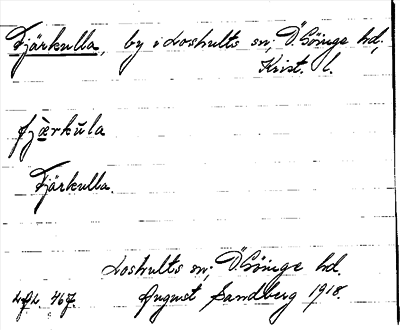 Fjärkulla, by i Loshults sn; Ö. Göinge hd,
Krist. l.
fjærkula
Fjärkulla.
Loshults sn; Ö. Göinge hd.
August Sandberg 1918.